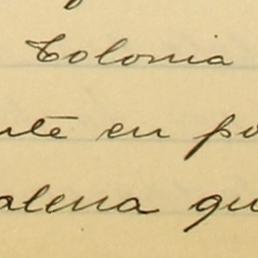 Colonia
nte en po
alena qu